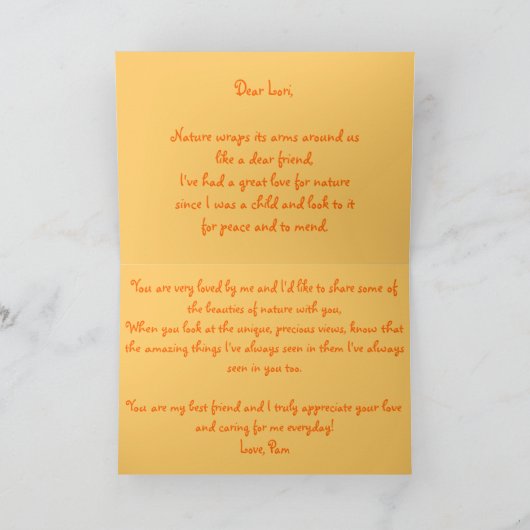 Dear Lori,
Nature wraps its arms around us
like a dear friend,
I've had a great love for nature
since I was a child and look to it
for peace and to mend.
You are very loved by me and I'd like to share some of
the beauties of nature with you,
When you look at the unique, precious views, know that
the amazing things I've always seen in them I've always
seen in you too.
You are my best friend and I truly appreciate your love
and caring for me everyday!
Love, Pam